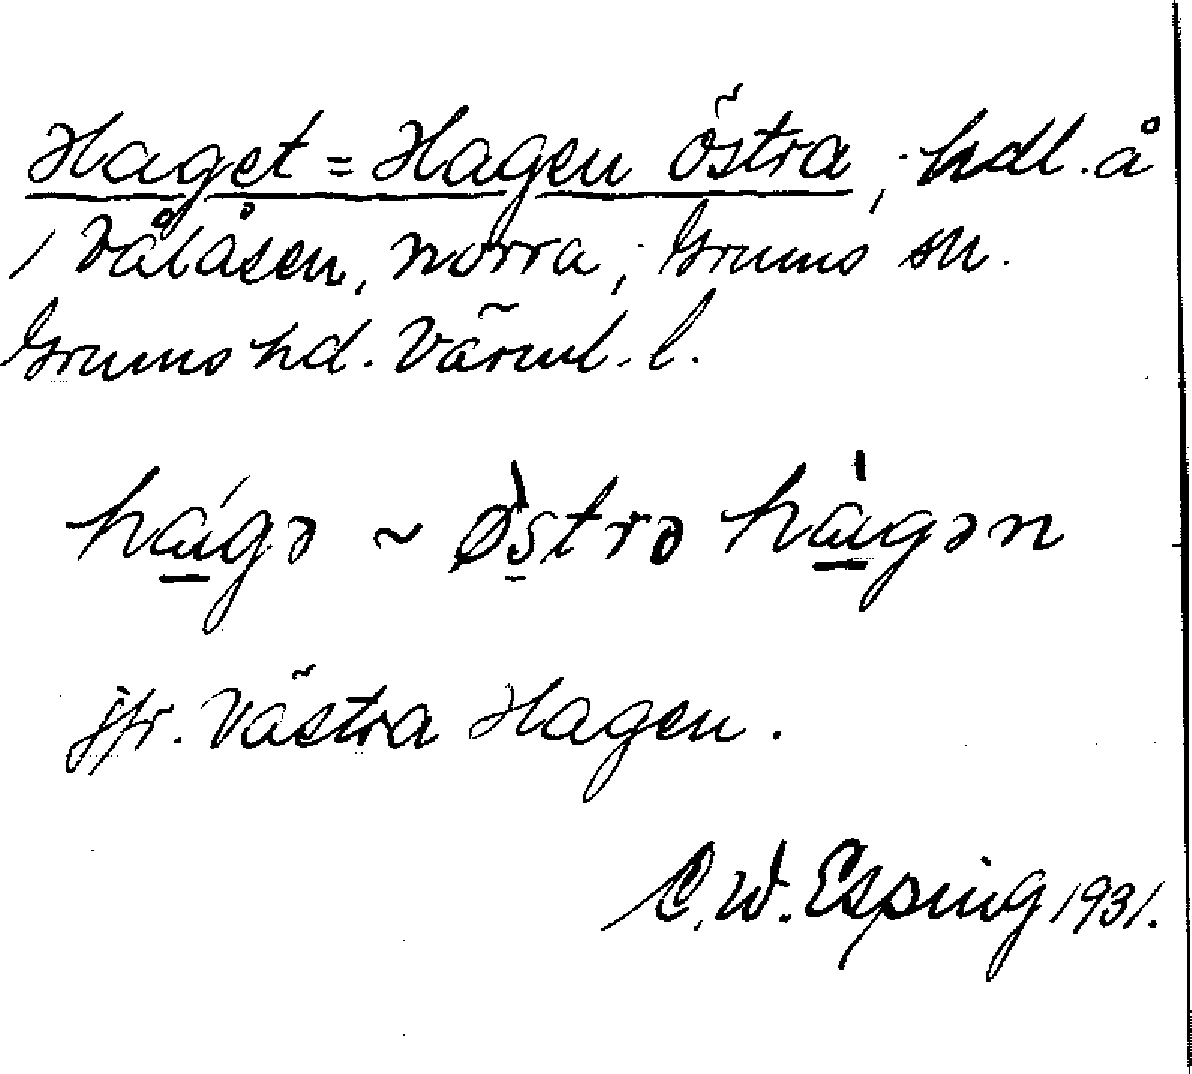 Haget = Hagen östra, hdl. å
1 Vålåsen, norra, Grums sn.
Grums hd. Värml. l.
hágə ~ østrə hàgən
jfr. Västra Hagen.
C. W. Esping 1931.